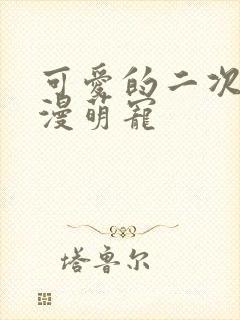 可爱的二次
漫萌宠
塔鲁尔